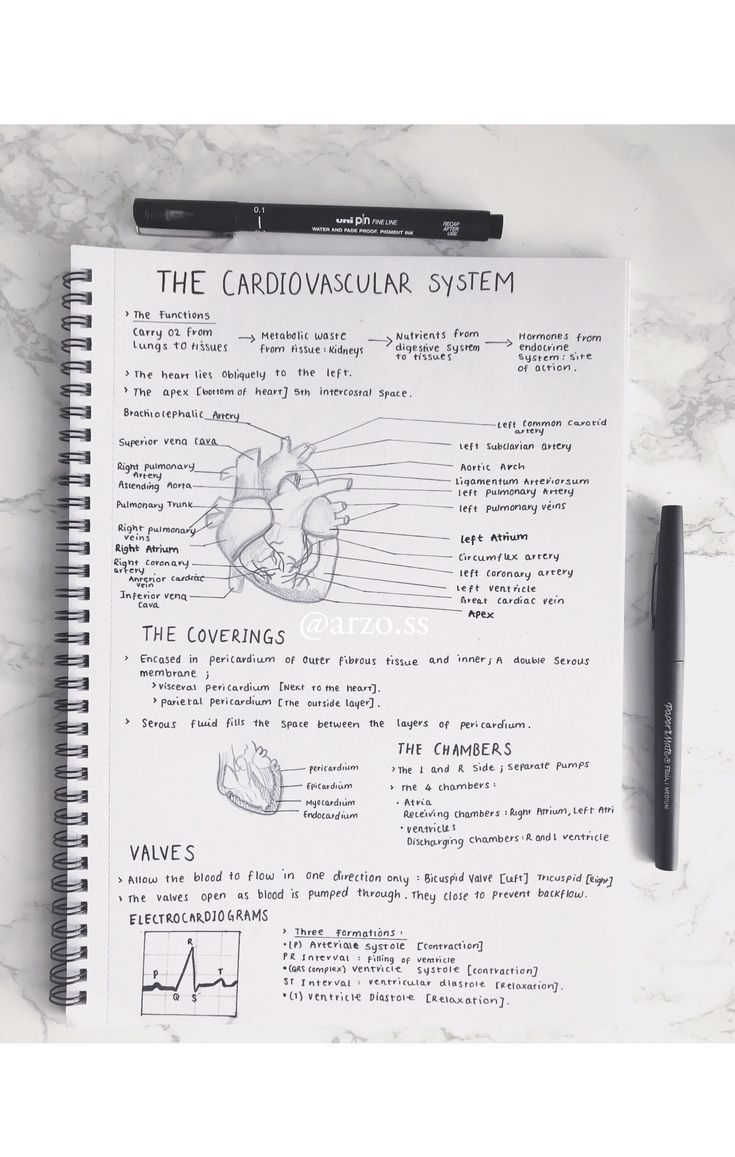 0.1
uni pin FINE LINE
WATER AND FADE PROOF, PIGMENT INK
RECAP
AFTER
USE
THE CARDIOVASCULAR SYSTEM
> The Functions
Carry O2 from
Lungs to tissues
→ Metabolic waste
from tissue : Kidneys
→ Nutrients from
digestive system
to tissues
→ Hormones from
endocrine
system : site
of action.
> The heart lies obliquely to the left.
> The apex [bottom of heart] 5th intercostal space.
Brachiocephalic Artery
Superior vena cava
Right pulmonary
Artery
Ascending Aorta
Pulmonary Trunk
Right pulmonary
veins
Right Atrium
Right coronary
artery
Anterior cardiac
vein
Inferior vena
cava
Left common carotid
artery
Left Subclarian artery
Aortic Arch
Ligamentum Arteriorsum
Left pulmonary Artery
Left pulmonary veins
Left Atrium
Circumflex artery
Left coronary artery
Left ventricle
Great cardiac vein
Apex
@arzo.ss
THE COVERINGS
> Encased in pericardium of outer fibrous tissue and inner; A double serous
membrane ;
> visceral pericardium [Next to the heart].
> parietal pericardium [The outside layer].
> Serous fluid fills the space between the layers of pericardium.
pericardium
Epicardium
Myocardium
Endocardium
THE CHAMBERS
> The L and R side ; separate pumps
> The 4 chambers :
• Atria
Receiving chambers : Right Atrium, Left Atri
• ventricles
Discharging chambers : R and L ventricle
VALVES
> Allow the blood to flow in one direction only : Bicuspid valve [left] Tricuspid [Right]
> The valves open as blood is pumped through. They close to prevent backflow.
ELECTROCARDIOGRAMS
P
R
Q
S
T
> Three formations :
• (P) Arteriale Systole [contraction]
PR Interval : filling of ventricle
• (QRS complex) ventricle systole [contraction]
ST Interval : ventricular diastole [Relaxation].
• (T) ventricle Diastole [Relaxation].
Paper Mate® FLAIR MEDIUM